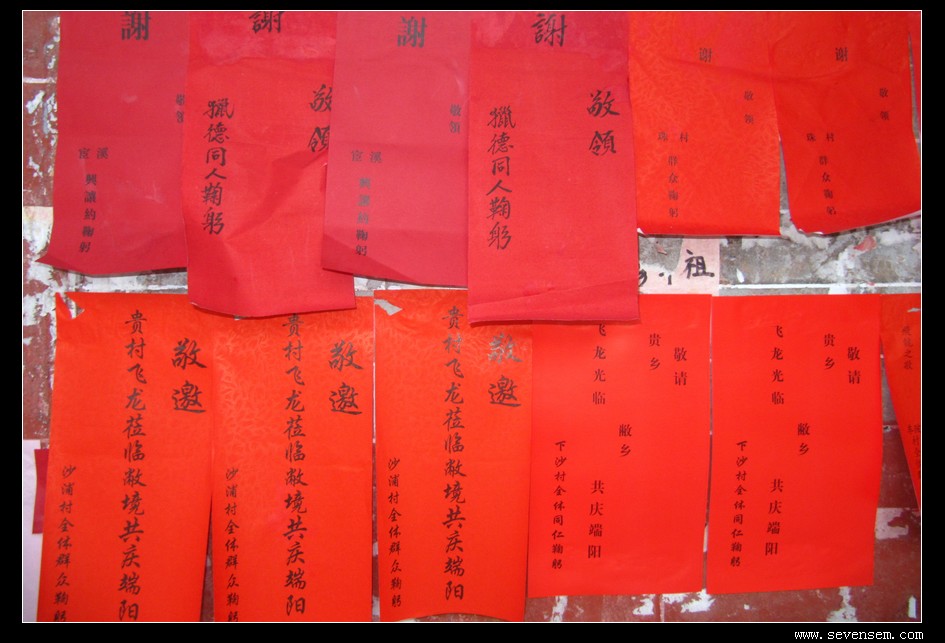 謝
敬領
宦溪
興讓約鞠躬
謝
敬領
獵德同人鞠躬
謝
敬領
宦溪
興讓約鞠躬
謝
敬領
獵德同人鞠躬
谢
敬领
珠村
群众鞠躬
谢
敬领
珠村
群众鞠躬
祖
敬邀
贵村飞龙莅临敝境共庆端阳
沙浦村全体群众鞠躬
敬邀
贵村飞龙莅临敝境共庆端阳
沙浦村全体群众鞠躬
敬邀
贵村飞龙莅临敝境共庆端阳
沙浦村全体群众鞠躬
敬请
贵乡
敝乡
飞龙光临 共庆端阳
下沙村全体同仁鞠躬
敬请
贵乡
敝乡
飞龙光临 共庆端阳
下沙村全体同仁鞠躬
www.sevensem.com